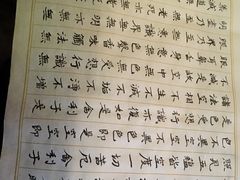 見五蘊皆空度一切苦厄舍利子
色不異空空不異色色即是空空即
是色受想行識亦復如是舍利子是
諸法空相不生不滅不垢不淨不增
不減是故空中無色無受想行識無
眼耳鼻舌身意無色聲香味觸法無
眼界乃至無意識界無無明亦無